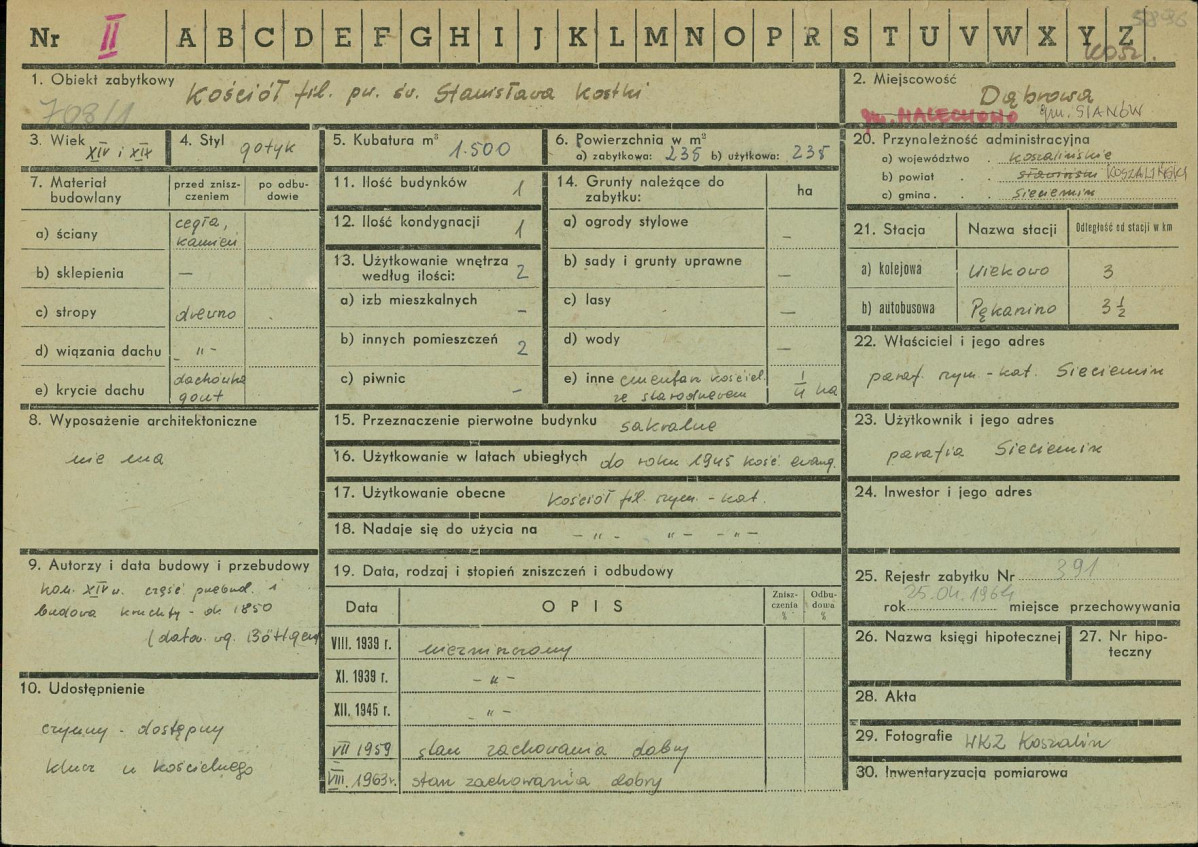 Nr II A B C D E F G H I J K L M N O P R S T U V W X Y Z
Kosz.
1. Obiekt zabytkowy Kościół fil. pw. św. Stanisława Kostki
708/1
2. Miejscowość
Dąbrowa
gm. MALECHOWO gm. SIANÓW
3. Wiek
XIV i XIX
4. Styl gotyk
5. Kubatura m³ 1.500
6. Powierzchnia w m²
a) zabytkowa: 235 b) użytkowa: 235
20. Przynależność administracyjna
a) województwo . koszalińskie
b) powiat . . sławiński KOSZALIŃSKI
c) gmina . . sieciemin
7. Materiał budowlany
przed zniszczeniem
po odbudowie
a) ściany cegła, kamień
b) sklepienia —
c) stropy drewno
d) wiązania dachu - " -
e) krycie dachu dachówka gont
11. Ilość budynków 1
12. Ilość kondygnacji 1
13. Użytkowanie wnętrza
według ilości: 2
a) izb mieszkalnych –
b) innych pomieszczeń 2
c) piwnic –
14. Grunty należące do
zabytku: ha
a) ogrody stylowe –
b) sady i grunty uprawne –
c) lasy –
d) wody –
e) inne cmentarz kościel. 1/4 ha
ze starodrzewem
21. Stacja Nazwa stacji Odległość od stacji w km
a) kolejowa Wiekowo 3
b) autobusowa Pękanino 3 1/2
22. Właściciel i jego adres
paraf. rzym.-kat. Sieciemin
8. Wyposażenie architektoniczne
nie ma
15. Przeznaczenie pierwotne budynku sakralne
16. Użytkowanie w latach ubiegłych do roku 1945 kość. ewang.
17. Użytkowanie obecne kościół fil. rzym.-kat.
18. Nadaje się do użycia na - " - - " - - " -
23. Użytkownik i jego adres
parafia Sieciemin
24. Inwestor i jego adres
9. Autorzy i data budowy i przebudowy
kon. XIV w. część przebud. i
budowa kruchty - ok 1850
(datow. wg. Böttgera
10. Udostępnienie
czynny - dostępny
klucz u kościelnego
19. Data, rodzaj i stopień zniszczeń i odbudowy
Data OPIS Zniszczenia % Odbudowa %
VIII. 1939 r. niezniszczony
XI. 1939 r. - " -
XII. 1945 r. - " -
VII 1959 stan zachowania dobry
VIII. 1963 r. stan zachowania dobry
25. Rejestr zabytku Nr 391
25.04.1964
rok miejsce przechowywania
26. Nazwa księgi hipotecznej
27. Nr hipoteczny
28. Akta
29. Fotografie WKZ Koszalin
30. Inwentaryzacja pomiarowa